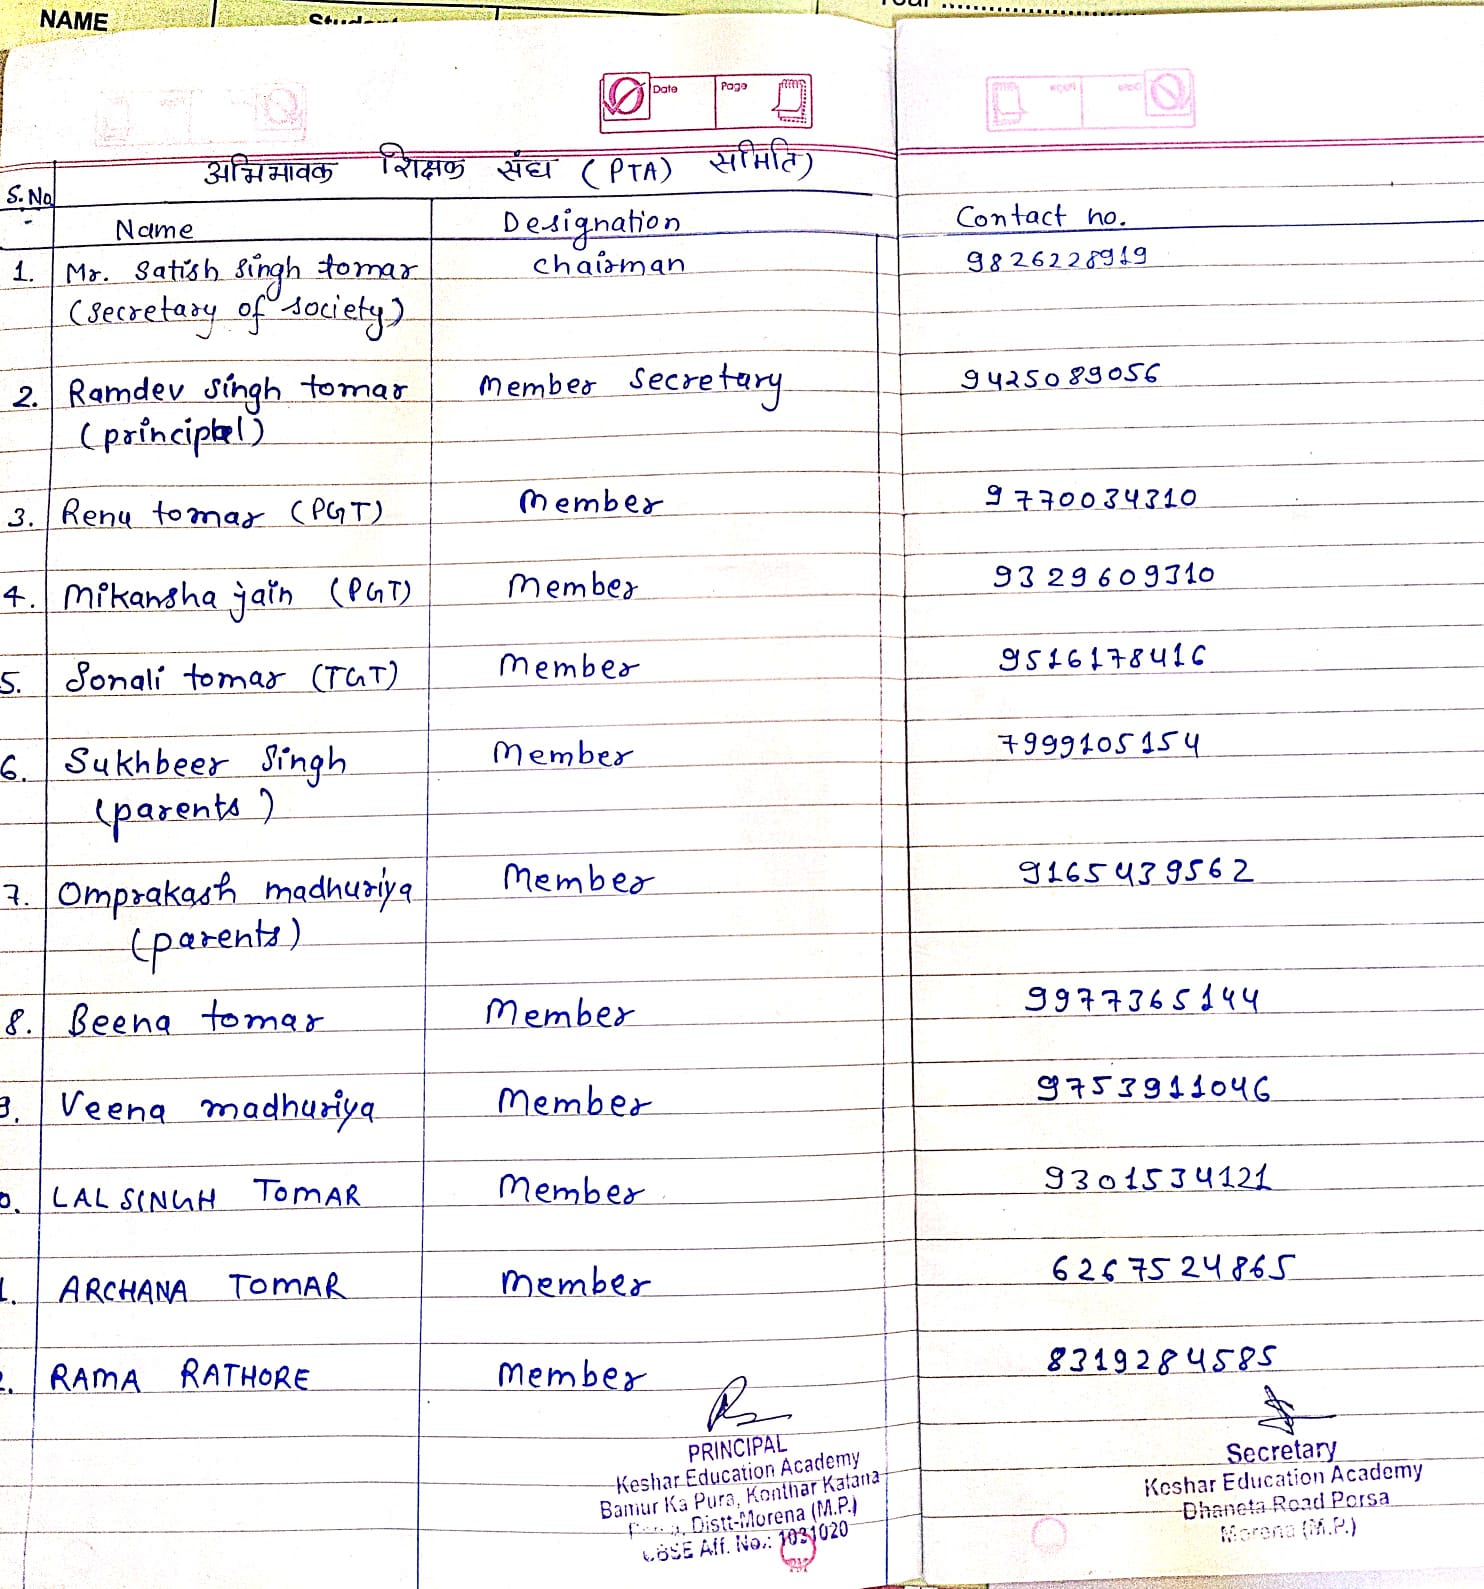 NAME
Date Page
अभिभावक शिक्षक संघ (PTA) समिति)
S.No Name Designation Contact no.
1. Mr. Satish singh tomar chairman 9826228919
(secretary of society)
2. Ramdev singh tomar Member secretary 9425089056
(principal)
3. Renu tomar (PGT) Member 9770034310
4. Mikansha jain (PGT) Member 9329609310
5. Sonali tomar (TGT) Member 9516178416
6. Sukhbeer singh Member 7999105154
(parents)
7. Omprakash madhuriya Member 9165439562
(parents)
8. Beena tomar Member 9977365144
9. Veena madhuriya Member 9753911046
0. LAL SINGH TOMAR Member 9301534121
1. ARCHANA TOMAR Member 6267524865
2. RAMA RATHORE Member 8319284585
PRINCIPAL
Keshar Education Academy
Bamur Ka Pura, Konthar Katana
Distt-Morena (M.P.)
CBSE Aff. No.: 1031020
Secretary
Keshar Education Academy
Dhaneta Road Porsa
Morena (M.P.)